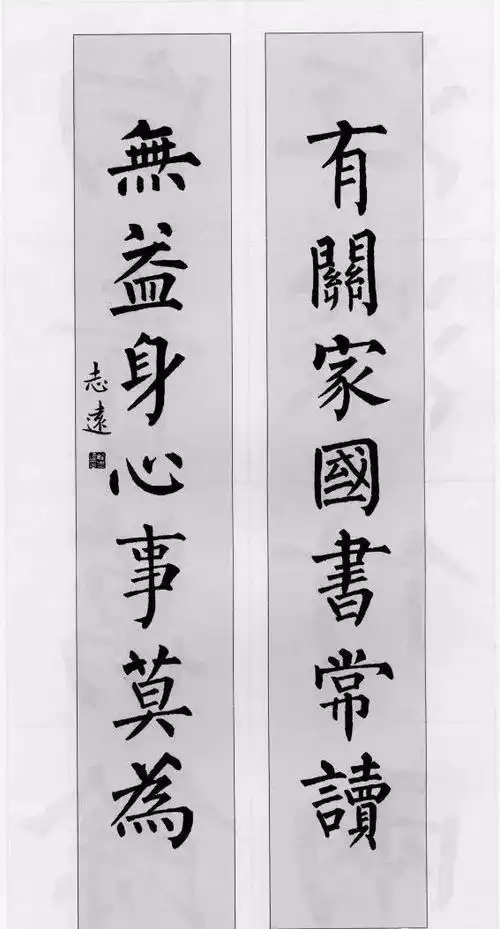 有關家國書常讀
無益身心事莫為
志遠